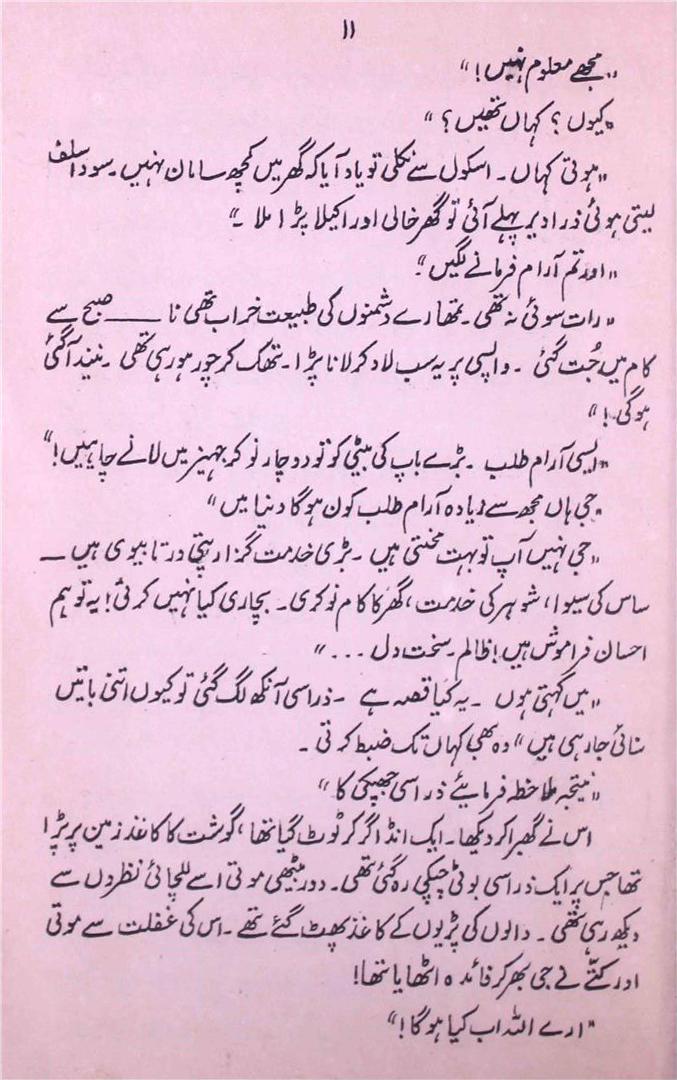 ۱۱
"مجھے معلوم نہیں!"
"کیوں؟ کہاں تھیں؟"
"ہوتی کہاں۔ اسکول سے نکلی تو یاد آیا کہ گھر میں کچھ سامان نہیں۔ سودا سلف
لیتی ہوئی ذرا دیر پہلے آئی تو گھر خالی اور اکیلا پڑا ملا۔"
"اور تم آرام فرمانے لگیں"۔
"رات سوئی نہ تھی۔ تمھارے دشمنوں کی طبیعت خراب تھی نا ـــــــ صبح سے
کام میں جُت گئی۔ واپسی پر یہ سب لاد کر لانا پڑا۔ تھک کر چور ہو رہی تھی۔ نیند آگئی
ہوگی۔!"
"ایسی آرام طلب۔ بڑے باپ کی بیٹی کو تو دو چار نوکر جہیز میں لانے چاہیں!"
"جی ہاں مجھ سے زیادہ آرام طلب کون ہوگا دنیا میں"
"جی نہیں آپ تو بہت محنتی ہیں۔ بڑی خدمت گزار پتی ورتا بیوی ہیں ــ
ساس کی سیوا، شوہر کی خدمت، گھر کا کام نوکری۔ بچاری کیا نہیں کرتی! یہ تو ہم
احسان فراموش ہیں! ظالم۔ سخت دل ..."
"میں کہتی ہوں۔ یہ کیا قصہ ہے۔ ذرا سی آنکھ لگ گئی تو کیوں اتنی باتیں
سنائی جا رہی ہیں" وہ بھی کہاں تک ضبط کرتی۔
"نیتجہ ملاحظہ فرمایئے ذرا سی جھپکی کا"
اس نے گھبرا کر دیکھا۔ ایک انڈا گر کر ٹوٹ گیا تھا، گوشت کا کاغذ زمین پر پڑا
تھا جس پر ایک ذرا سی بوٹی چپکی رہ گئی تھی۔ دور بیٹھی موتی اسے للچائی نظروں سے
دیکھ رہی تھی۔ دالوں کی پڑیوں کے کاغذ پھٹ گئے تھے۔ اس کی غفلت سے موتی
اور کتّے نے جی بھر کر فائدہ اٹھایا تھا!
"ارے اللہ اب کیا ہوگا!"